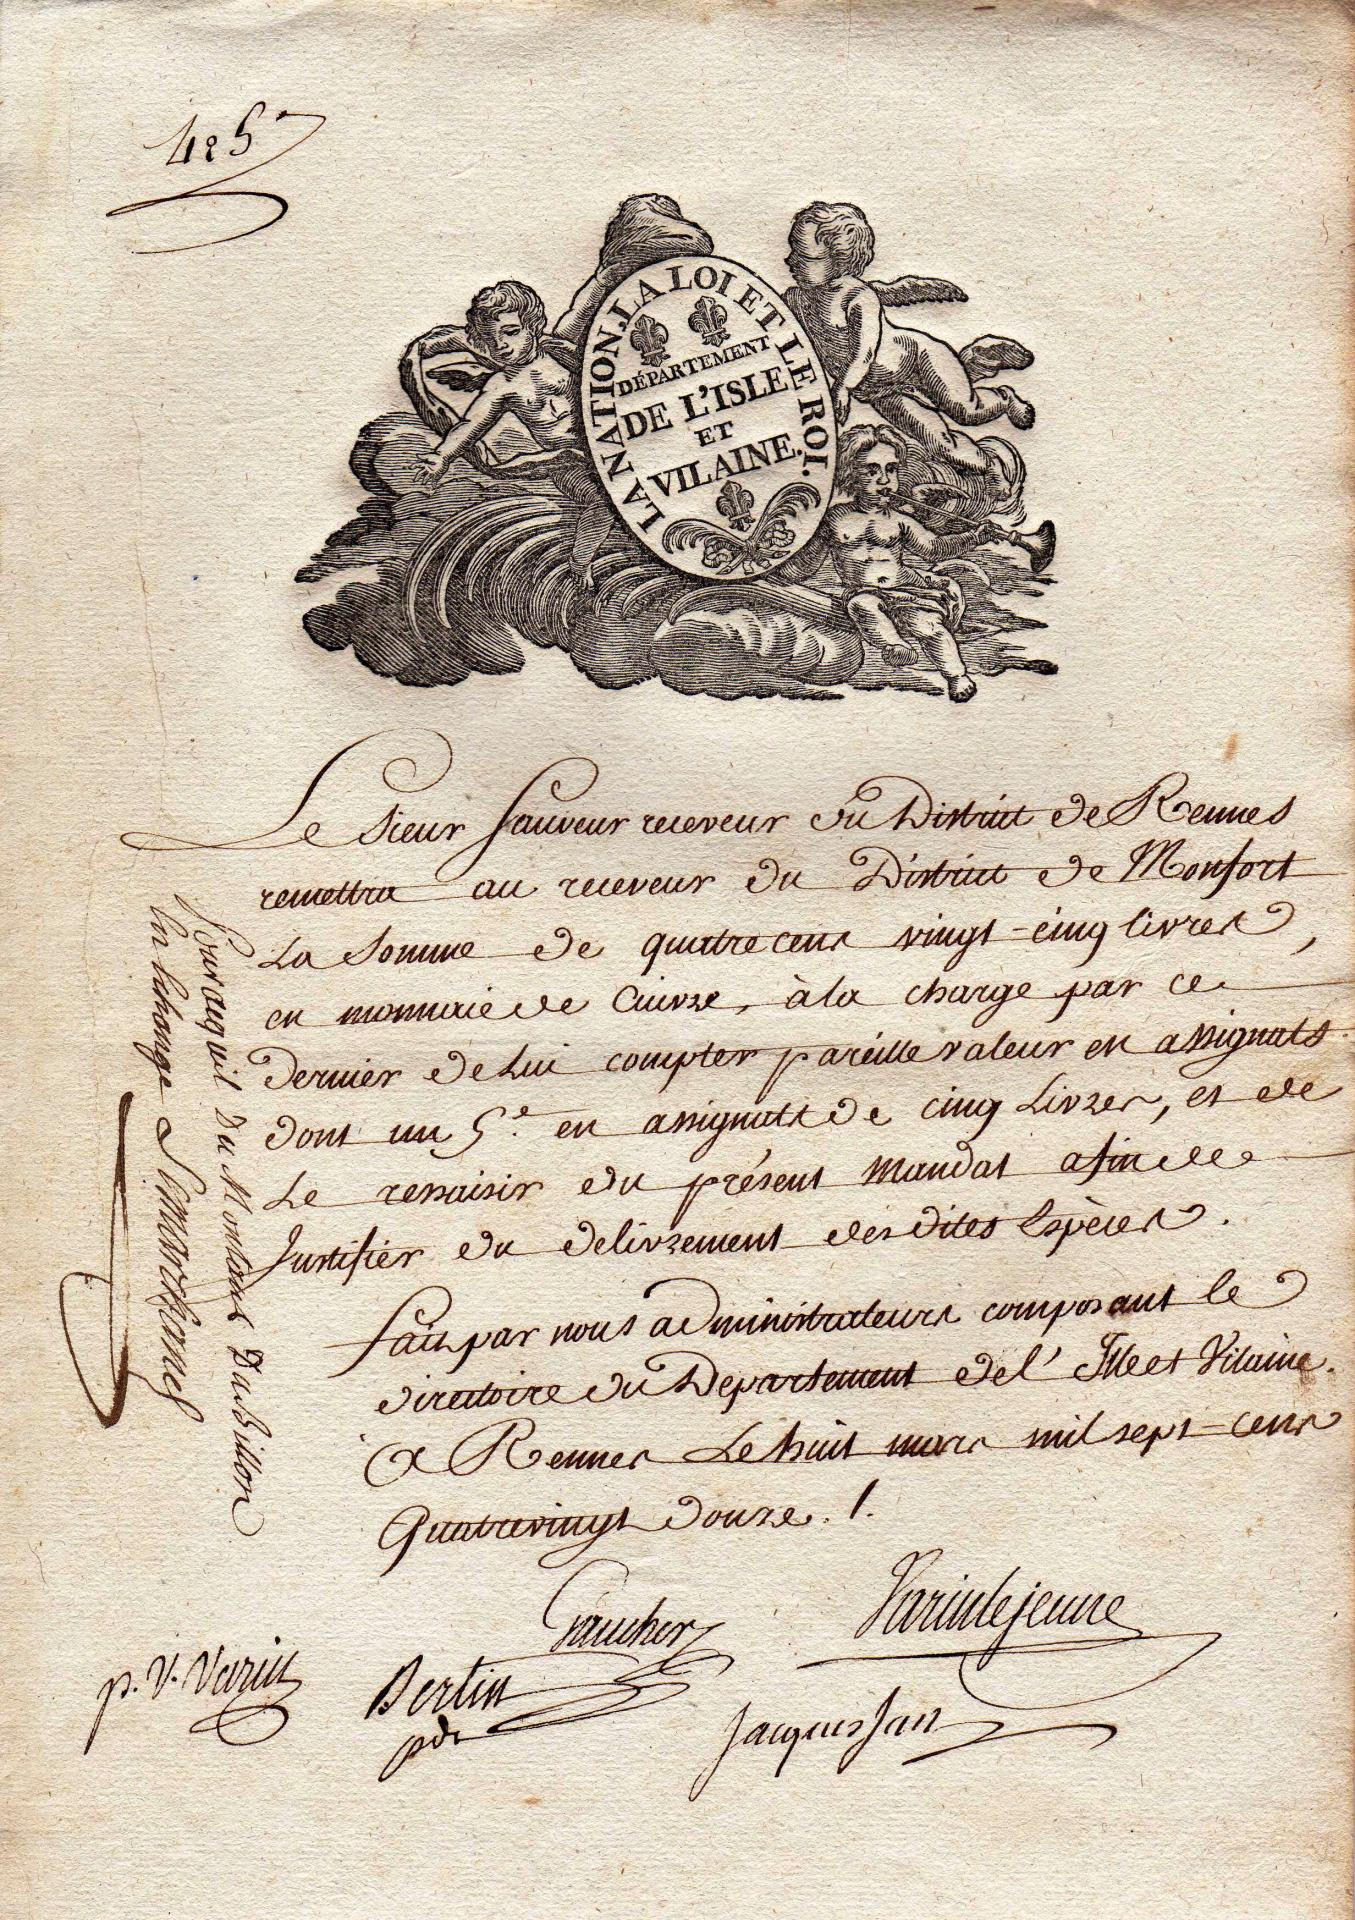 425
LA NATION, LA LOI ET LE ROI.
DÉPARTEMENT
DE L'ISLE
ET
VILAINE.
Le Sieur Sauveur receveur du District de Rennes
remettra au receveur du District de Monfort
La Somme de quatre cens vingt-cinq livres,
en monnaie de Cuivre, à la charge par ce
dernier de Lui compter pareille valeur en assignats
dont un 5.e en assignats de cinq Livres, et de
Le ressaisir du présent Mandat afin de
Justifier du délivrement des dites Espèces.
fait par nous administrateurs composant le
directoire du Département de l'Ille et Vilaine.
a Rennes Le huit mars mil sept-cens
Quatrevingt douze. /.
Pour acquit Du Montant Du Billon
En Echange
Gaucher
Varin le jeune
p. V. Varin
Bertin
pdt
Jacques Jan